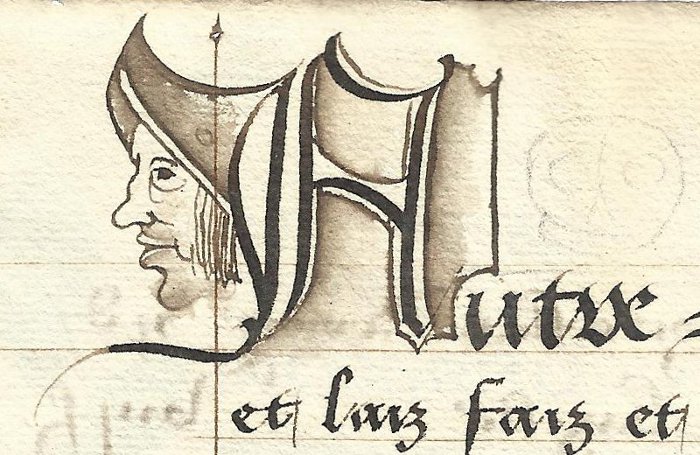 Autre
et laiz faiz et